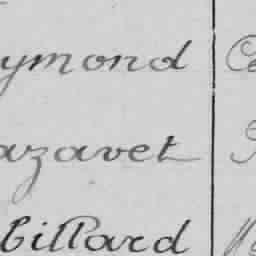 ymond
azavet
billard